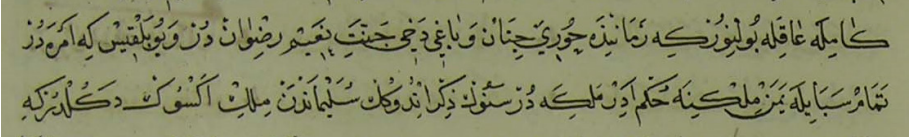 كامله عاقله بولنور كه زمانيذه حوري جنان و باغي دخي جنت نعيم رضوان در و بو بلقيس كه امره در
تمام سبا ايله يمن ملكينه حكم ادر ملكه در سنوك ذكر اندوكك سليماندن ملك اكسوك دكلدر كه